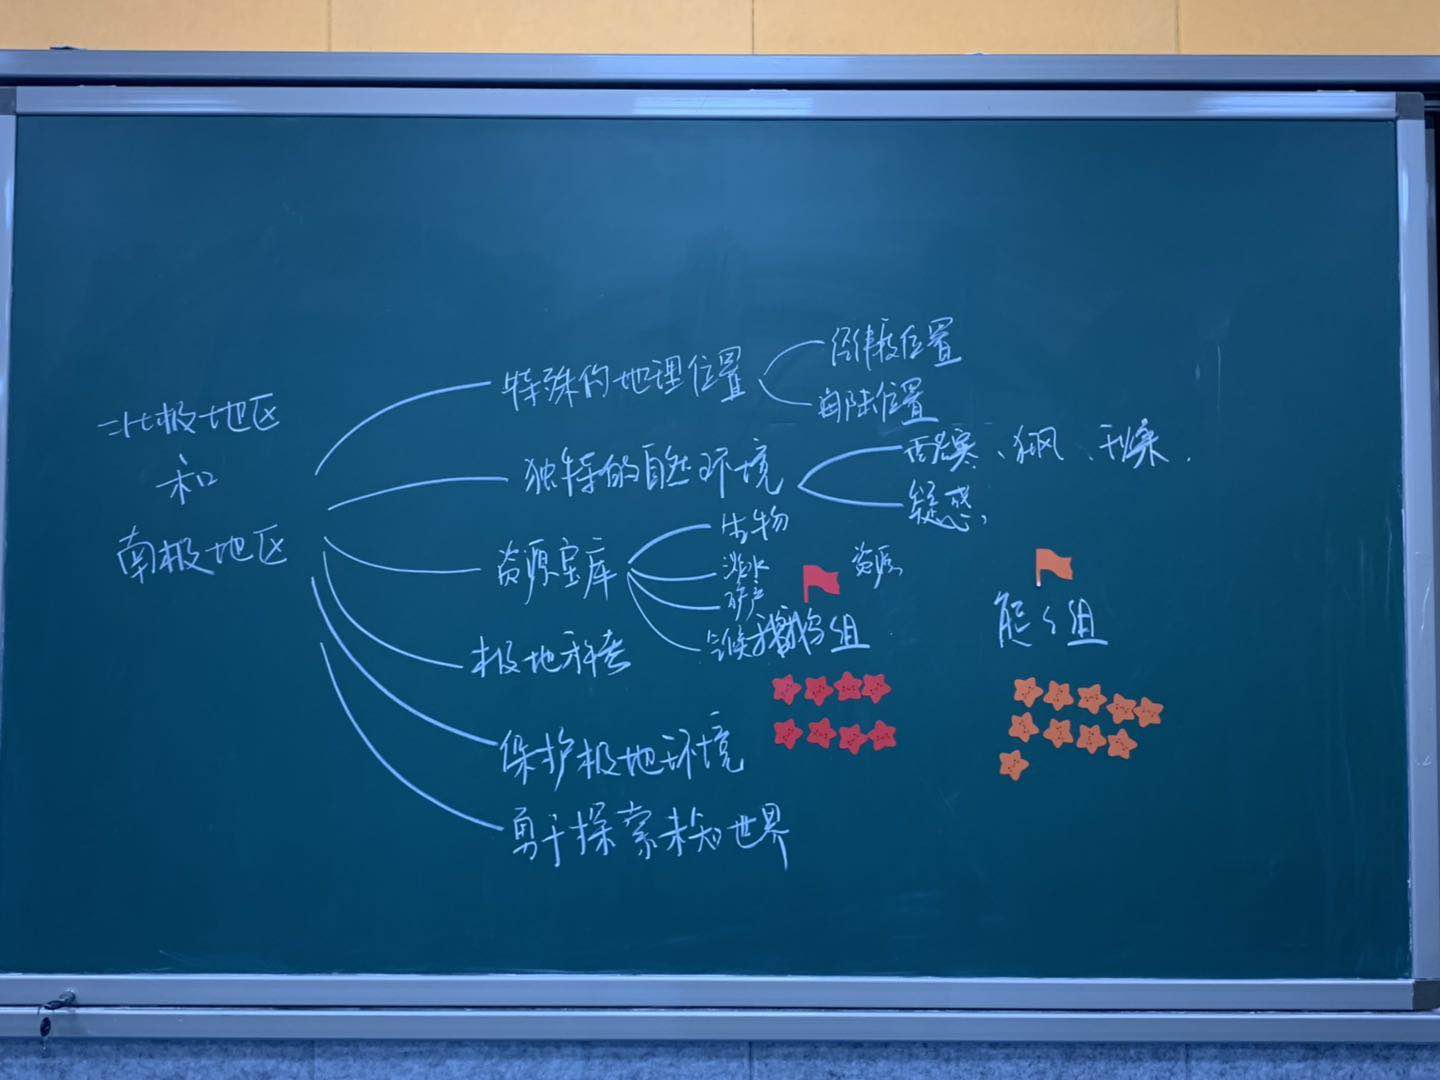 北极地区
和
南极地区
特殊的地理位置
经纬度位置
海陆位置
独特的自然环境
酷寒、狂风、干燥.
疑惑
资源宝库
生物
淡水
矿产
资源
企鹅组
熊熊组
极地科考
保护极地环境
勇于探索未知世界